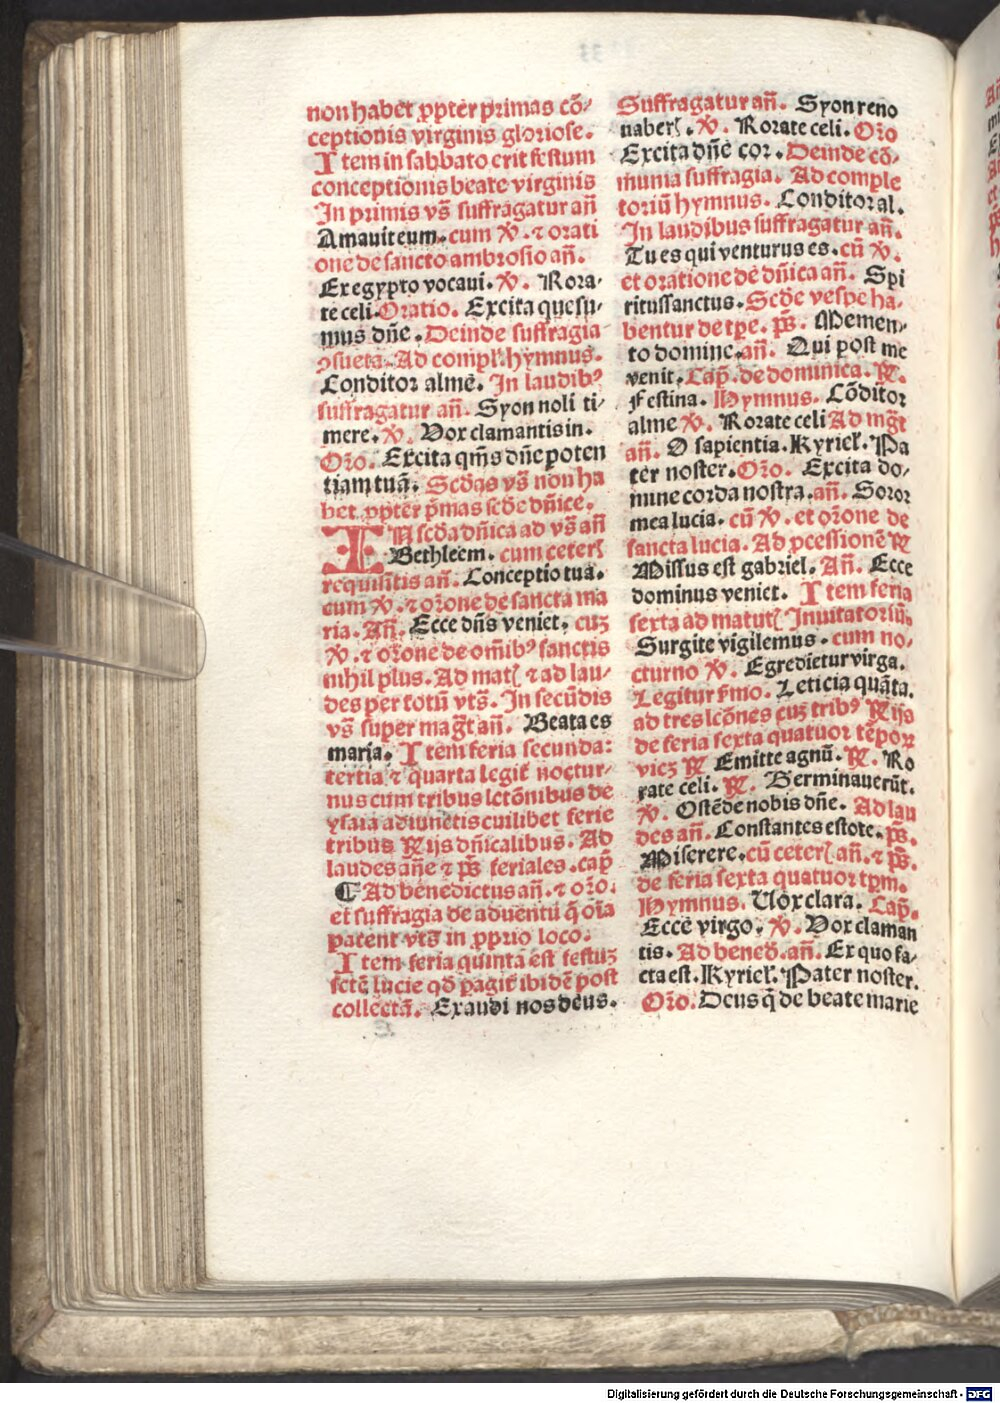 non habet ꝓpter primas cō-
ceptionis virginis gloriose.
Item in sabbato erit festum
conceptionis beate virginis
In primis vs̄ suffragatur an̄
Amauit eum. cum ℣. ⁊ orati
one de sancto ambrosio an̄.
Ex egypto vocaui. ℣. Rora-
te celi. Oratio. Excita quesu-
mus dn̄e. Deinde suffragia
ꝯsueta. Ad compl'. hymnus.
Conditor alme. In laudibꝰ
suffragatur an̄. Syon noli ti-
mere. ℣. Vox clamantis in.
Oꝛ̄o. Excita qm̄s dn̄e poten
tiam tuā. Scd̄as vs̄ non ha
bet ꝓpter p̄mas scd̄e dn̄ice.
IN scd̄a dn̄ica ad vs̄ an̄
Bethleem. cum ceterꝭ
requisitis an̄. Conceptio tua.
cum ℣. ⁊ oꝛ̄one de sancta ma
ria. An̄. Ecce dn̄s veniet. cuꝫ
℣. ⁊ oꝛ̄one de om̄ibꝰ sanctis
nihil plus. Ad matꝭ ⁊ ad lau-
des per totū vts̄. In secūdis
vs̄ super mag̅t an̄. Beata es
maria. Item feria secunda:
tertia ⁊ quarta legit̄ noctur-
nus cum tribus lctōnibus de
ysaia adiunctis cuilibet ferie
tribus ℟ijs dn̄icalibus. Ad
laudes an̄e ⁊ ps̄ feriales. cap̄
Ad benedictus an̄. ⁊ oꝛ̄o.
et suffragia de aduentu q̄ oīa
patent vts̄ in ꝓprio loco.
Item feria quinta est festuꝫ
sctē lucie qd̄ ꝑagit̄ ibidē post
collectā. Exaudi nos deus.
Suffragatur an̄. Syon reno
uaberꝭ. ℣. Rorate celi. Oꝛ̄o
Excita dn̄e cor. Deinde cō-
munia suffragia. Ad comple
toriū hymnus. Conditor al.
In laudibus suffragatur an̄.
Tu es qui venturus es. cū ℣.
et oratione de dn̄ica an̄. Spi
ritussanctus. Scd̄e vespe ha-
bentur de tp̄e. ps̄. Memen-
to domine. an̄. Qui post me
venit. Cap̄. de dominica. ℟.
Festina. Hymnus. Cōditor
alme ℣. Rorate celi Ad mg̅t
an̄. O sapientia. Kyriel'. Pa
ter noster. Oꝛ̄o. Excita do-
mine corda nostra. an̄. Soror
mea lucia. cū ℣. et oꝛ̄one de
sancta lucia. Ad ꝓcessionē ℟
Missus est gabriel. An̄. Ecce
dominus veniet. Item feria
sexta ad matutꝭ Inuitatoriū.
Surgite vigilemus. cum no-
cturno ℣. Egredietur virga.
Legitur s̄mo. Leticia quāta.
ad tres lcōnes cuꝫ tribꝰ ℟ijs
de feria sexta quatuor tēpoꝝ
vicꝫ ℟ Emitte agnū. ℟. Ro
rate celi. ℟. Germinauerūt.
℣. Ostēde nobis dn̄e. Ad lau
des an̄. Constantes estote. ps̄.
Miserere. cū ceterꝭ an̄. ⁊ ps̄.
de feria sexta quatuor tpm̄.
Hymnus. Vox clara. Cap̄.
Ecce virgo. ℣. Vox claman
tis. Ad bened̄. an̄. Ex quo fa-
cta est. Kyriel'. Pater noster.
Oꝛ̄o. Deus q̄ de beate marie
Digitalisierung gefördert durch die Deutsche Forschungsgemeinschaft - DFG